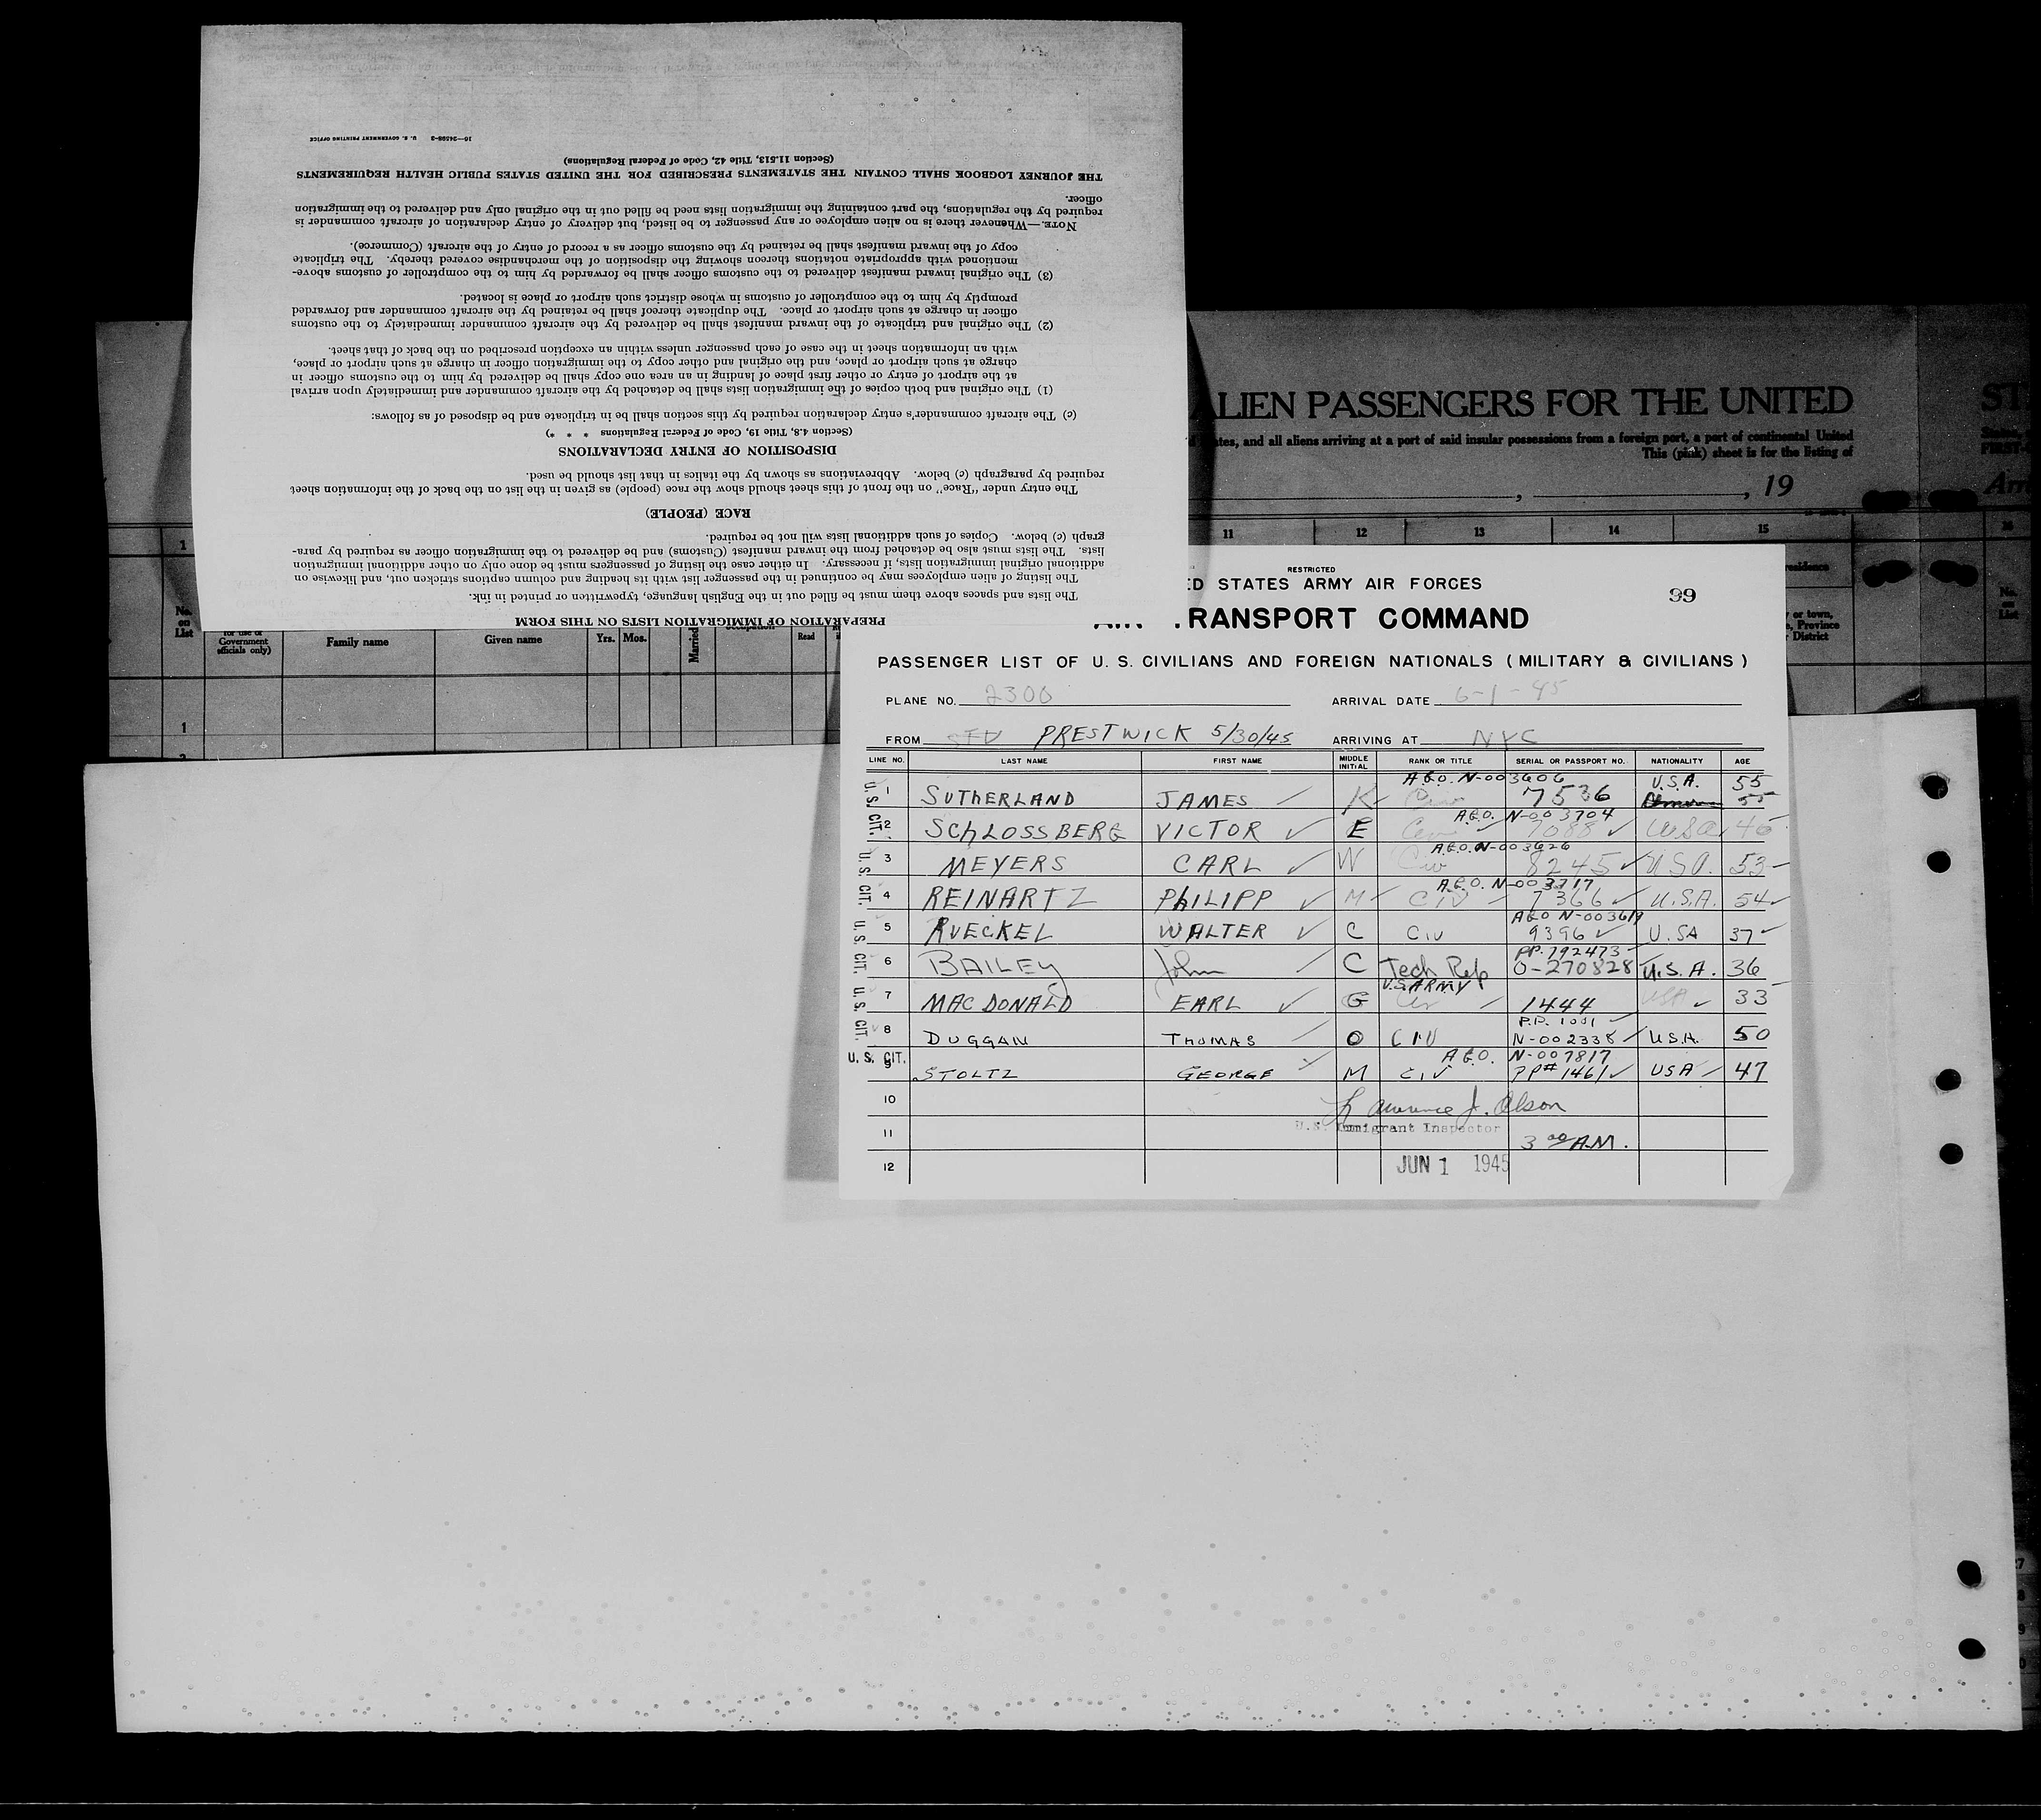 16—24598-2 U. S. GOVERNMENT PRINTING OFFICE
(Section 11.513, Title 42, Code of Federal Regulations)
THE JOURNEY LOGBOOK SHALL CONTAIN THE STATEMENTS PRESCRIBED FOR THE UNITED STATES PUBLIC HEALTH REQUIREMENTS
officer.
required by the regulations, the part containing the immigration lists need be filled out in the original only and delivered to the immigration
NOTE.—Whenever there is no alien employee or any passenger to be listed, but delivery of entry declaration of aircraft commander is
copy of the inward manifest shall be retained by the customs officer as a record of entry of the aircraft (Commerce).
mentioned with appropriate notations thereon showing the disposition of the merchandise covered thereby. The triplicate
(3) The original inward manifest delivered to the customs officer shall be forwarded by him to the comptroller of customs above-
promptly by him to the comptroller of customs in whose district such airport or place is located.
officer in charge at such airport or place. The duplicate thereof shall be retained by the aircraft commander and forwarded
(2) The original and triplicate of the inward manifest shall be delivered by the aircraft commander immediately to the customs
with an information sheet in the case of each passenger unless within an exception prescribed on the back of that sheet.
charge at such airport or place, and the original and other copy to the immigration officer in charge at such airport or place,
at the airport of entry or other first place of landing in an area one copy shall be delivered by him to the customs officer in
(1) The original and both copies of the immigration lists shall be detached by the aircraft commander and immediately upon arrival
(c) The aircraft commander's entry declaration required by this section shall be in triplicate and be disposed of as follows:
(Section 4.3, Title 19, Code of Federal Regulations * * *)
DISPOSITION OF ENTRY DECLARATIONS
required by paragraph (c) below. Abbreviations as shown by the italics in that list should be used.
The entry under "Race" on the front of this sheet should show the race (people) as given in the list on the back of the information sheet
RACE (PEOPLE)
graph (c) below. Copies of such additional lists will not be required.
lists. The lists must also be detached from the inward manifest (Customs) and be delivered to the immigration officer as required by para-
additional original immigration lists, if necessary. In either case the listing of passengers must be done only on other additional immigration
The listing of alien employees may be continued in the passenger list with its heading and column captions stricken out, and likewise on
The lists and spaces above them must be filled out in the English language, typewritten or printed in ink.
PREPARATION OF IMMIGRATION LISTS ON THIS FORM
ALIEN PASSENGERS FOR THE UNITED
ates, and all aliens arriving at a port of said insular possessions from a foreign port, a port of continental United
This (pink) sheet is for the listing of
, , 19
11 12 13 14 15
1
No. on List
Government officials only) Family name Given name Yrs. Mos. Married Read
1
RESTRICTED
ED STATES ARMY AIR FORCES
99
RANSPORT COMMAND
PASSENGER LIST OF U. S. CIVILIANS AND FOREIGN NATIONALS ( MILITARY & CIVILIANS )
PLANE NO. 2300 ARRIVAL DATE 6-1-45
FROM PRESTWICK 5/30/45 ARRIVING AT NYC
LINE NO. LAST NAME FIRST NAME MIDDLE INITIAL RANK OR TITLE SERIAL OR PASSPORT NO. NATIONALITY AGE
A.G.O. N-003606 U.S.A. 55
U.S. CIT. 1 SUTHERLAND JAMES K Civ 7536 55
A.G.O. N-003704
2 SCHLOSSBERG VICTOR E Civ 7088 USA 46
A.G.O. N-003626
U.S. CIT. 3 MEYERS CARL W Civ 8245 USA. 53
A.G.O. N-003717
4 REINARTZ PHILIPP M CIV 7366 U.S.A. 54
AGO N-003619
U.S. CIT. 5 RUECKEL WALTER C CIV 9396 U.SA 37
PP. 792473
6 BAILEY John C Tech Rep O-270828 U.S.A. 36
U.S. ARMY
U.S. CIT. 7 MAC DONALD EARL G Civ 1444 USA 33
P.P. 1001
8 DUGGAN THOMAS O CIV N-002338 U.S.A. 50
A.G.O. N-007817
U. S. CIT. 9 STOLTZ GEORGE M CIV PP# 1461 USA 47
10 Lawrence J. Olson
11 U.S. Immigrant Inspector 3 00 A.M.
12 JUN 1 1945